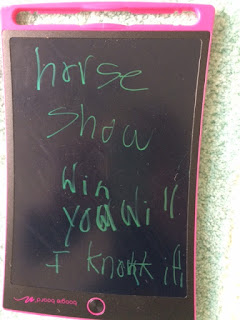 horse
show
win
you will
I know it
boogie board